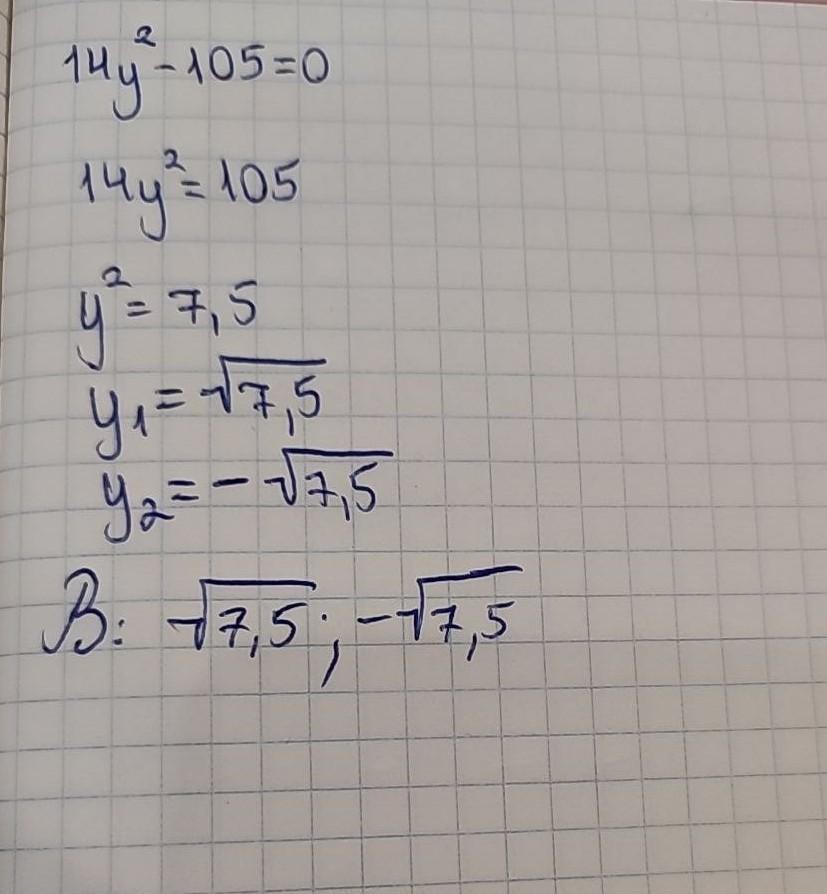 14y²-105=0
14y²=105
y²=7,5
y₁=√7,5
y₂=-√7,5
В: √7,5; -√7,5